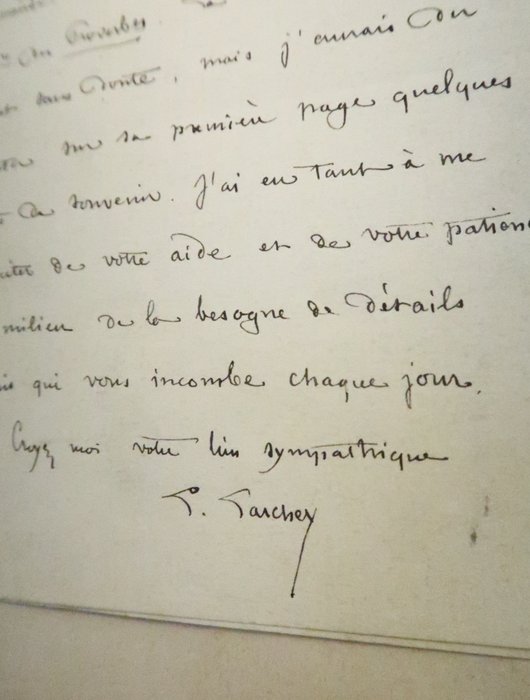 du Proverbes.
sans doute, mais j'aurais du
sur sa première page quelques
souvenir. J'ai eu tant à me
de votre aide et de votre patien
milieu de la besogne de détails
qui vous incombe chaque jour.
Croyez moi votre bien sympathique
L. Larchey